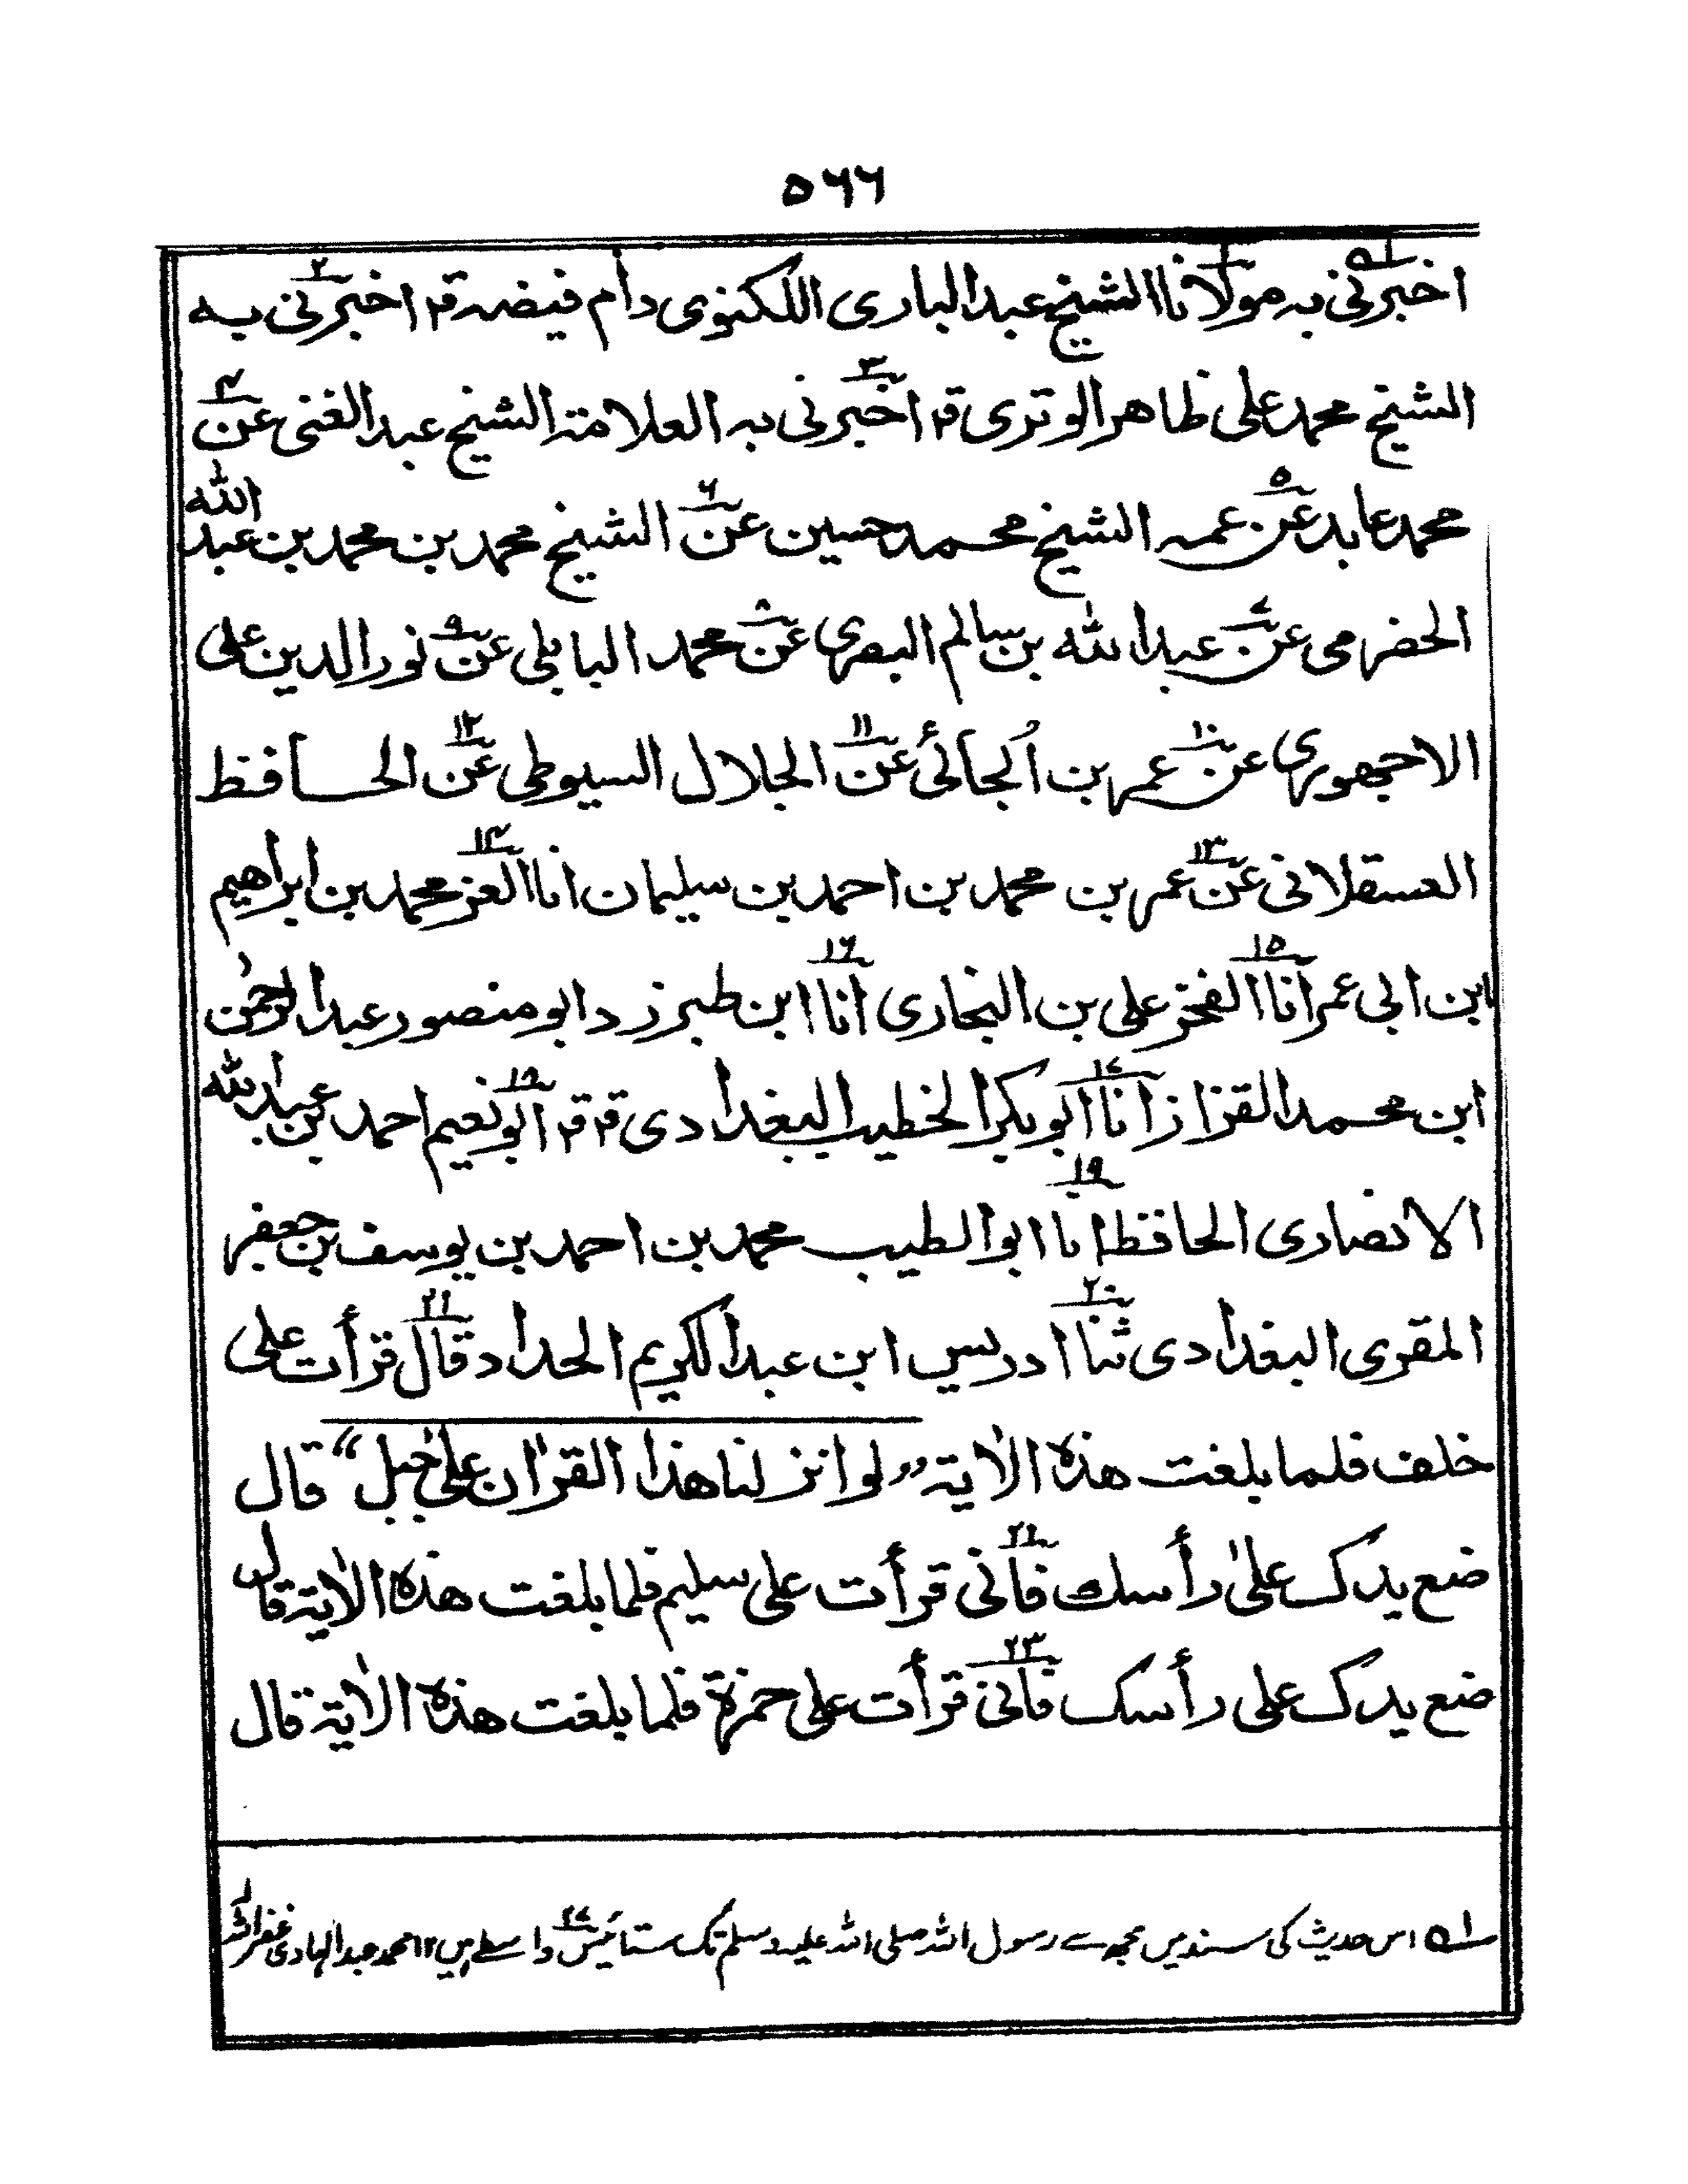 ٥٦٦
اخبرنی بہ مولانا الشیخ عبدالباری اللکنوی دام فیضہ قا اخبرنی بہ
الشیخ محمد علی ظاھر الوتری قا اخبرنی بہ العلامۃ الشیخ عبد الغنی عن
محمد عابد عن عمہ الشیخ محمد حسین عن الشیخ محمد بن محمد بن عبد اللّٰہ
الحضرمی عن عبد اللّٰہ بن سالم البصری عن محمد البابلی عن نور الدین علی
الاجھوری عن عمر بن الجائی عن الجلال السیوطی عن الحافظ
العسقلانی عن عمر بن محمد بن احمد بن سلیمان انا العز محمد بن ابراھیم
ابن ابی عمر انا الفخر علی بن البخاری انا ابن طبرزد ابو منصور عبد الرحمٰن
ابن محمد القزاز انا ابو بکر الخطیب البغدادی قا قا ابو نعیم احمد بن عبد اللّٰہ
الانصاری الحافظ انا ابو الطیب محمد بن احمد بن یوسف بن جعفر
المقری البغدادی ثنا ادریس ابن عبد الکریم الحداد قال قرأت علی
خلف فلما بلغت ھذہ الاٰیۃ ”لو انزلنا ھذا القراٰن علیٰ جبل“ قال
ضع یدک علیٰ رأسک فانی قرأت علی سلیم فلما بلغت ھذہ الاٰیۃ قال
ضع یدک علی رأسک فانی قرأت علی حمزۃ فلما بلغت ھذہ الاٰیۃ قال
؂۱ اس حدیث کی سند میں مجھ سے رسول اللہ صلی اللہ علیہ وسلم تک ستائیس ۲۷ واسطے ہیں ۱۲ محمد عبد الہادی غفر لہ اللہ